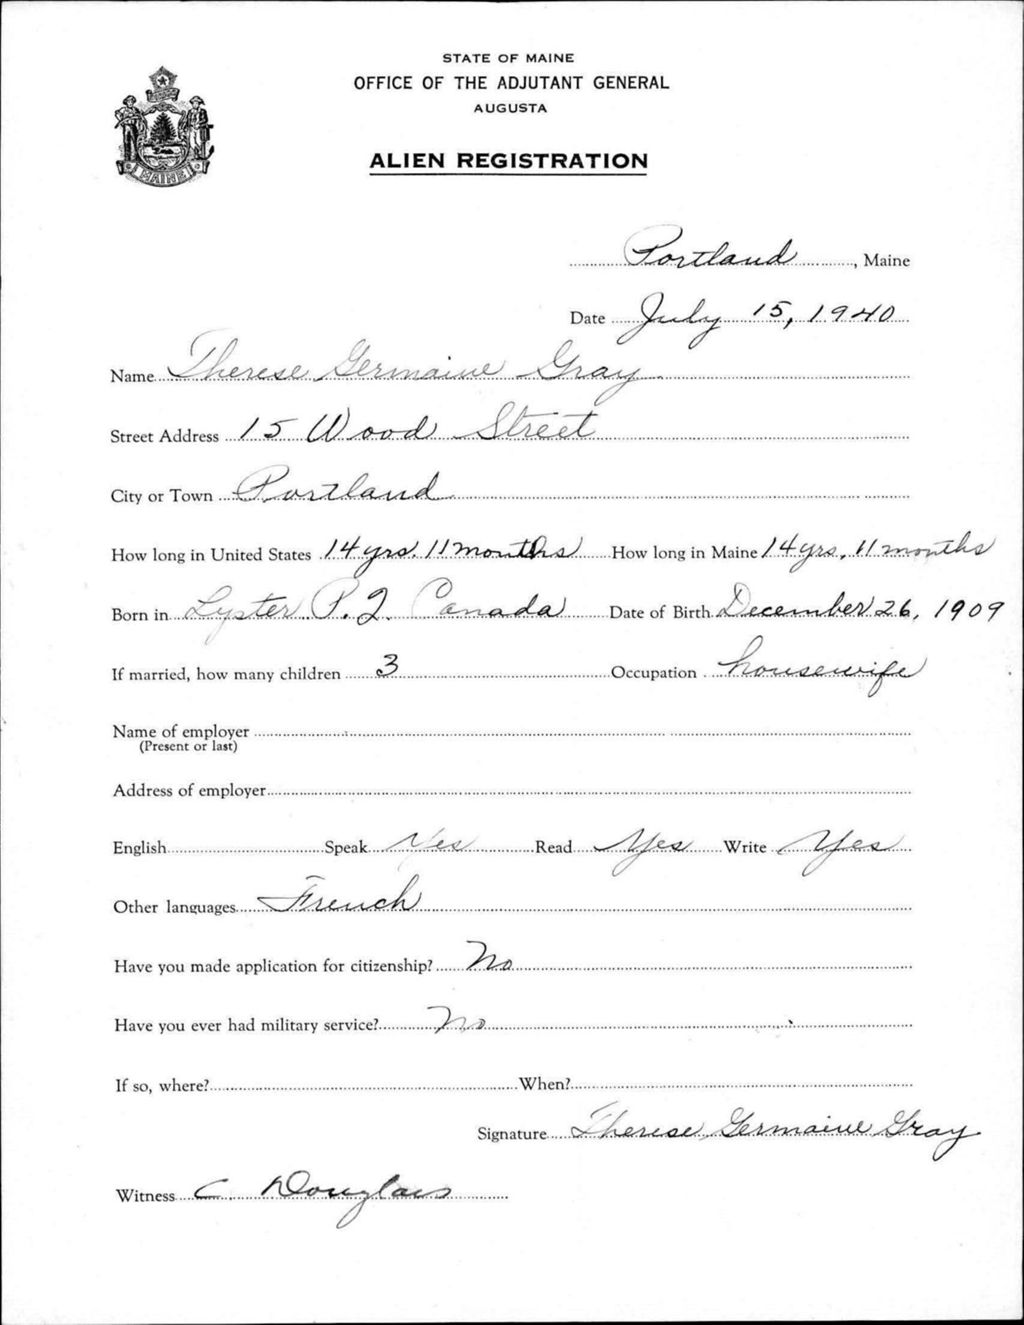 STATE OF MAINE
OFFICE OF THE ADJUTANT GENERAL
AUGUSTA
ALIEN REGISTRATION
MAINE
Portland, Maine
Date July 15, 1940
Name Therese Germaine Gray
Street Address 15 Wood Street
City or Town Portland
How long in United States 14 yrs. 11 months How long in Maine 14 yrs. 11 months
Born in Lyster P.Q. Canada Date of Birth December 26, 1909
If married, how many children 3 Occupation housewife
Name of employer
(Present or last)
Address of employer
English Speak Yes Read Yes Write Yes
Other languages French
Have you made application for citizenship? No
Have you ever had military service? No
If so, where? When?
Signature Therese Germaine Gray
Witness C. Douglass